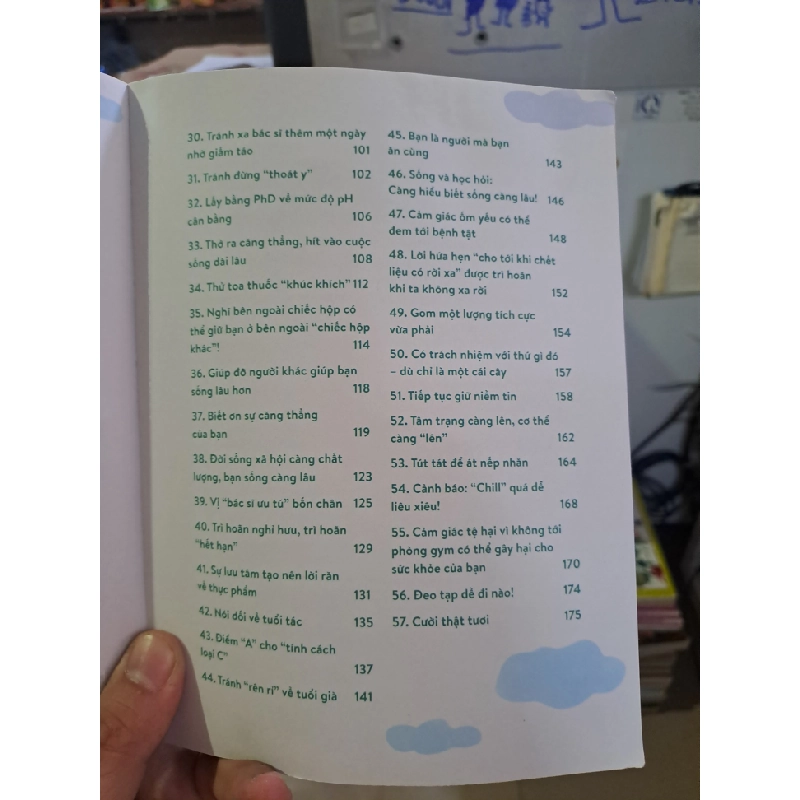 30. Tránh xa bác sĩ thêm một ngày
nhờ giấm táo 101
31. Tránh đừng "thoát y" 102
32. Lấy bằng PhD về mức độ pH
cân bằng 106
33. Thở ra căng thẳng, hít vào cuộc
sống dài lâu 108
34. Thử toa thuốc "khúc khích" 112
35. Nghĩ bên ngoài chiếc hộp có
thể giữ bạn ở bên ngoài "chiếc hộp
khác"! 114
36. Giúp đỡ người khác giúp bạn
sống lâu hơn 118
37. Biết ơn sự căng thẳng
của bạn 119
38. Đời sống xã hội càng chất
lượng, bạn sống càng lâu 123
39. Vị "bác sĩ ưu tú" bốn chân 125
40. Trì hoãn nghỉ hưu, trì hoãn
"hết hạn" 129
41. Sự lưu tâm tạo nên lời răn
về thực phẩm 131
42. Nói dối về tuổi tác 135
43. Điểm "A" cho "tính cách
loại C" 137
44. Tránh "rên rỉ" về tuổi già 141
45. Bạn là người mà bạn
ăn cùng 143
46. Sống và học hỏi:
Càng hiểu biết sống càng lâu! 146
47. Cảm giác ốm yếu có thể
đem tới bệnh tật 148
48. Lời hứa hẹn "cho tới khi chết
liệu có rời xa" được trì hoãn
khi ta không xa rời 152
49. Gom một lượng tích cực
vừa phải 154
50. Có trách nhiệm với thứ gì đó
– dù chỉ là một cái cây 157
51. Tiếp tục giữ niềm tin 158
52. Tâm trạng càng lên, cơ thể
càng "lên" 162
53. Tút tát để át nếp nhăn 164
54. Cảnh báo: "Chill" quá dễ
liêu xiêu! 168
55. Cảm giác tệ hại vì không tới
phòng gym có thể gây hại cho
sức khỏe của bạn 170
56. Đeo tạp dề đi nào! 174
57. Cười thật tươi 175